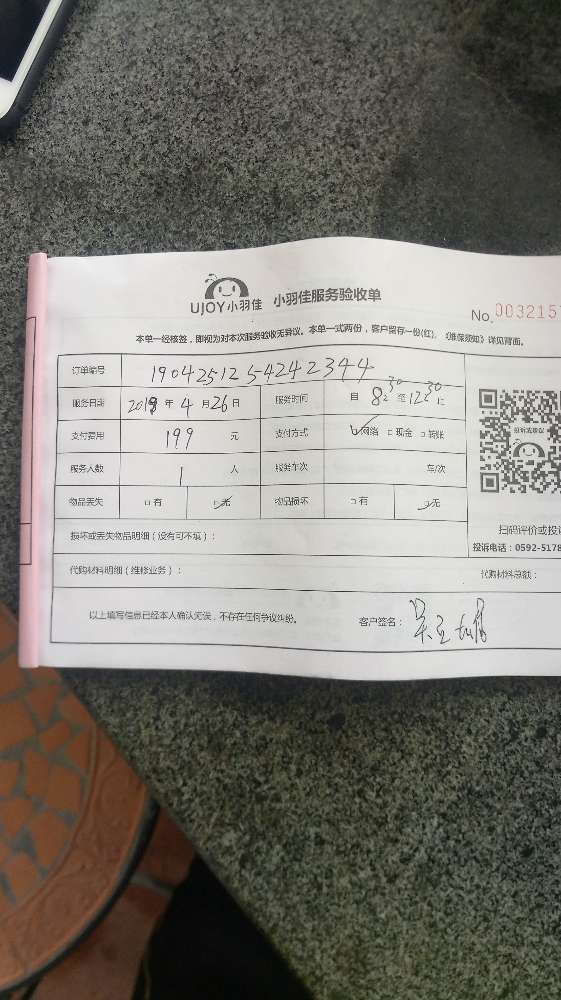 UJOY小羽佳 小羽佳服务验收单
No.0032157
本单一经核签，即视为对本次服务验收无异议。本单一式两份，客户留存一份(红)。《维保须知》详见背面。
订单编号 1904251254242344
服务日期 2019年4月26日 服务时间 自8:30至12:30止
支付费用 199元 支付方式 ☑网络 □现金 □转账
服务人数 1人 服务车次 车/次
物品丢失 □有 ☑无 物品损坏 □有 ☑无
投诉或建议
损坏或丢失物品明细（没有可不填）：
扫码评价或投
投诉电话：0592-5178
代购材料明细（维修业务）： 代购材料总额：
以上填写信息已经本人确认无误，不存在任何争议纠纷。 客户签名：